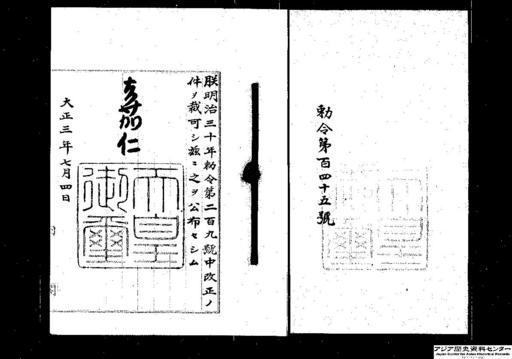 勅令第百四十五號
朕明治三十年勅令第二百九號中改正ノ
件ヲ裁可シ茲ニ之ヲ公布セシム
嘉仁
天皇
御璽
大正三年七月四日
アジア歴史資料センター
Japan Center for Asian Historical Records